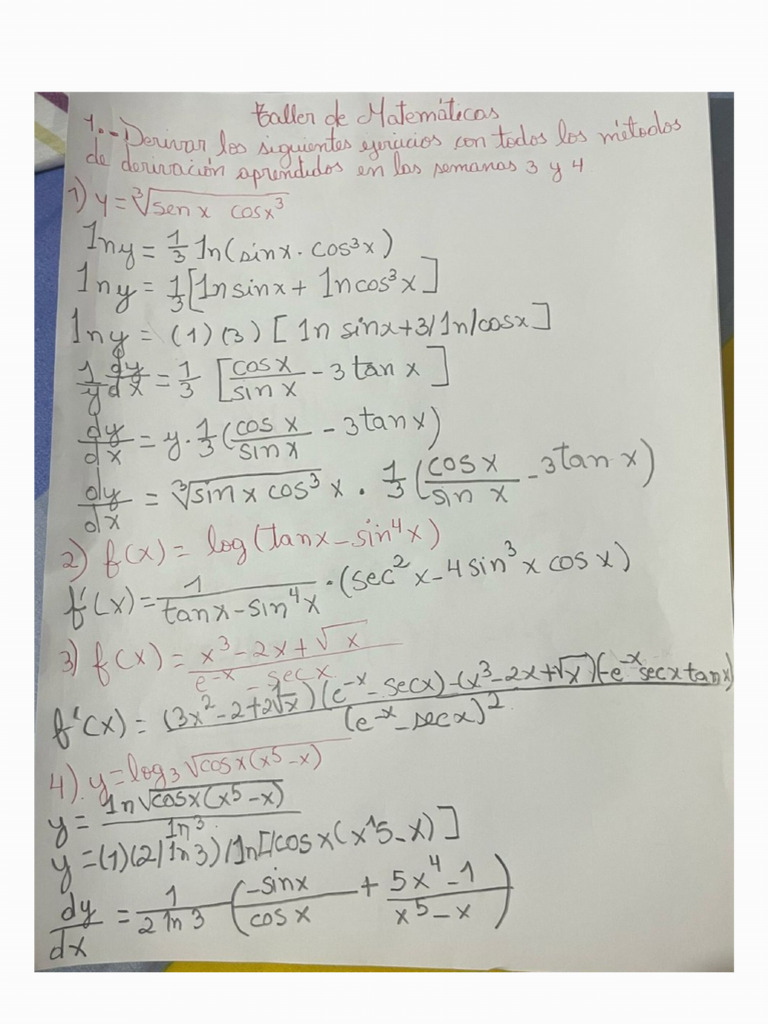 Taller de Matemáticas
1.- Derivar los siguientes ejercicios con todos los métodos
de derivación aprendidos en las semanas 3 y 4
1) y = ∛(sen x cos x³)
1ny = 1/3 1n(sinx. cos³x)
1ny = 1/3 [1n sinx + 1n cos³x]
1ny = (1)(3) [1n sinx+3/1n/cosx]
1/y dy/dx = 1/3 [cosx/sin x - 3 tan x]
dy/dx = y. 1/3 (cos x/sin x - 3tan x)
dy/dx = ∛(sin x cos³) x . 1/3 (cos x/sin x - 3tan x)
2) f(x) = log(tanx - sin⁴x)
f'(x) = 1/(tanx - sin⁴x) . (sec²x - 4 sin³x cos x)
3) f(x) = (x³ - 2x + √x)/(e⁻ˣ - sec x)
f'(x) = ((3x² - 2 + 2√x)(e⁻ˣ - secx) - (x³ - 2x + √x)(-e⁻ˣ secx tanx))/(e⁻ˣ - secx)²
4). y = log₃ √(cosx(x⁵ - x))
y = 1n√(cosx(x⁵ - x))/1n3.
y = (1)(2/1n3)/1n[/cosx(x^5 - x)]
dy/dx = 1/(2 1n 3) (-sinx/cos x + (5x⁴ - 1)/(x⁵ - x))